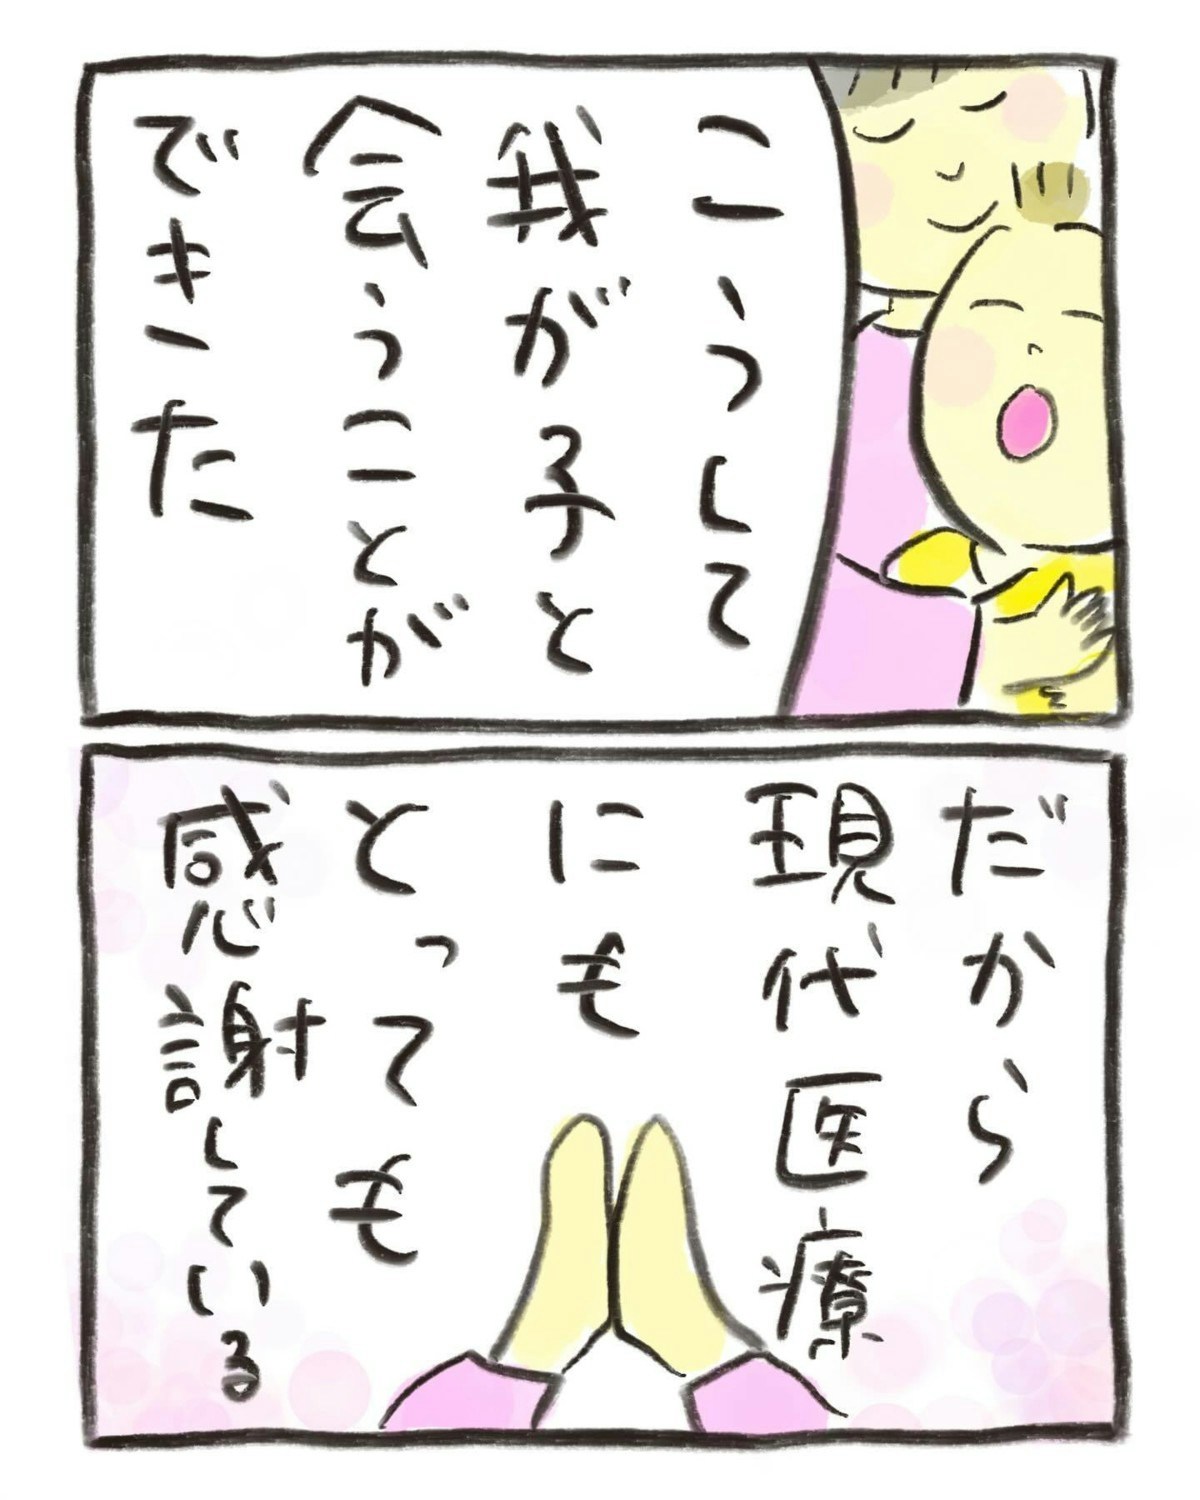 こうして
我が子と
会うことが
できた
だから
現代医療
にも
とっても
感謝している